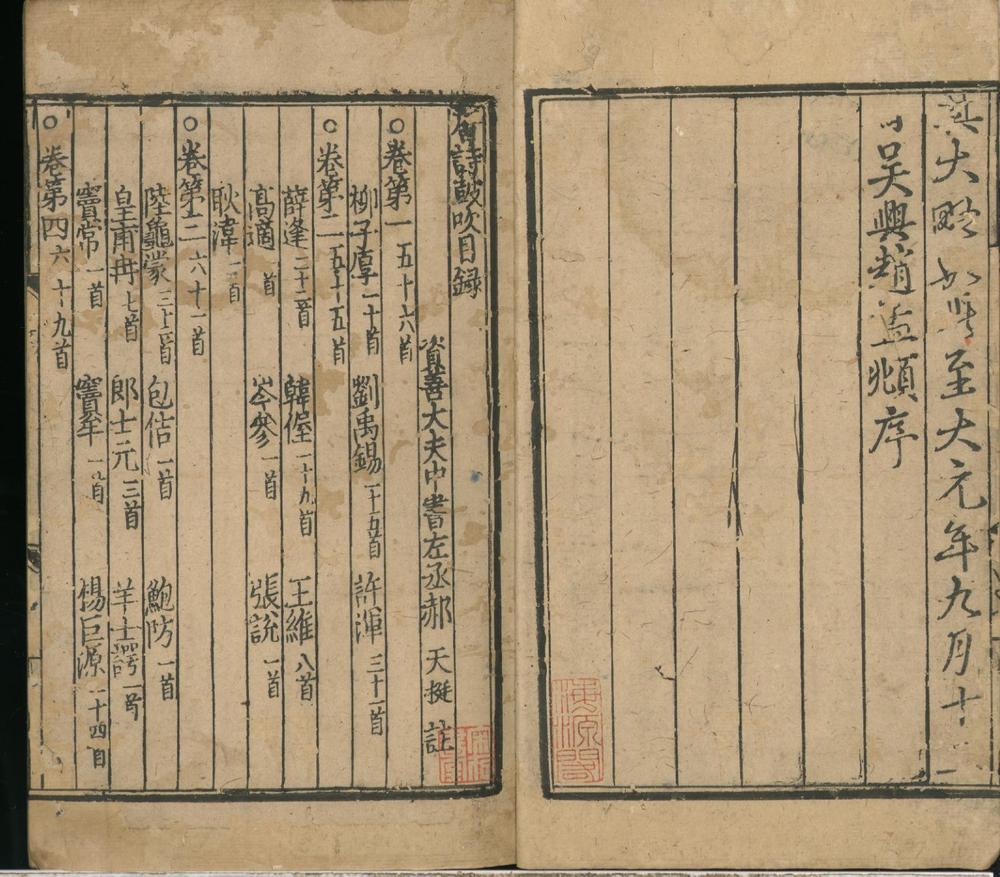 其大略如此至大元年九月十二
日吳興趙孟頫序
詩鼓吹目録
資善大夫中書左丞郝天挺註
○卷第一五十六首
柳子厚二十首 劉禹錫二十五首 許渾三十一首
○卷第二五十五首
薛逢二十二首 韓偓二十九首 王維八首
高適一首 岑參一首 張說一首
耿湋一首
○卷第三六十一首
陸龜蒙三十三首 包佶一首 鮑防一首
皇甫冉七首 郎士元三首 羊士諤一首
竇常一首 竇牟一首 楊巨源二十四首
○卷第四六十九首
海源閣